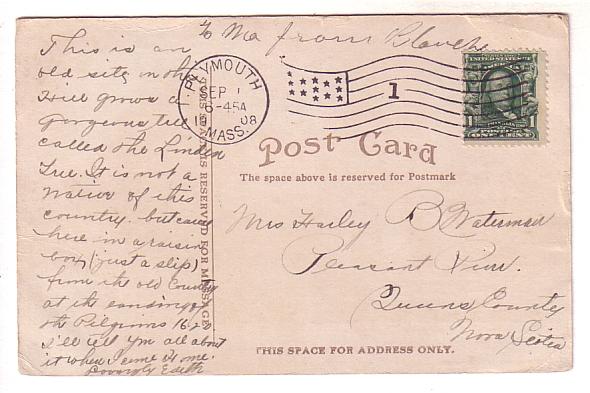 To Ma from Blanche
This is an
old site, on the
Hill grows a
gorgeous tree
called the Linden
Tree. It is not a
native of this
country. but came
here in a raisin
box (just a slip)
from the old Country
at the landing of
the Pilgrims 16
I'll tell you all about
it when I come home.
Edith
THIS SPACE IS RESERVED FOR MESSAGE
PLYMOUTH
SEP 1
6-45A
1908
MASS.
1
UNITED STATES
1 ONE CENT 1
Post Card
The space above is reserved for Postmark
Mrs Harley B Waterman
Pleasant View.
Queens County
Nova Scotia
THIS SPACE FOR ADDRESS ONLY.